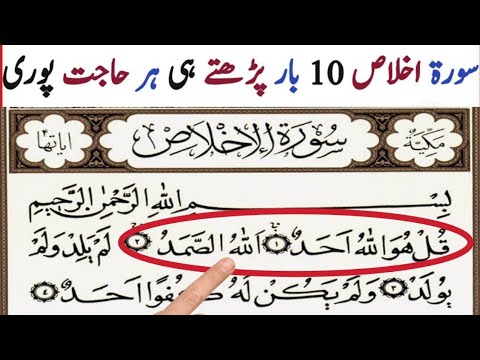 سورۃ اخلاص 10 بار پڑھتے ہی ہر حاجت پوری
مَكِّيَّةٌ سُورَةُ الْإِخْلَاصِ اٰيَاتُهَا ٤
بِسْمِ اللهِ الرَّحْمٰنِ الرَّحِيْمِ
قُلْ هُوَ اللهُ اَحَدٌ ۝١ اَللهُ الصَّمَدُ ۝٢ لَمْ يَلِدْ وَلَمْ
يُوْلَدْ ۝٣ وَلَمْ يَكُنْ لَهُ كُفُوًا اَحَدٌ ۝٤